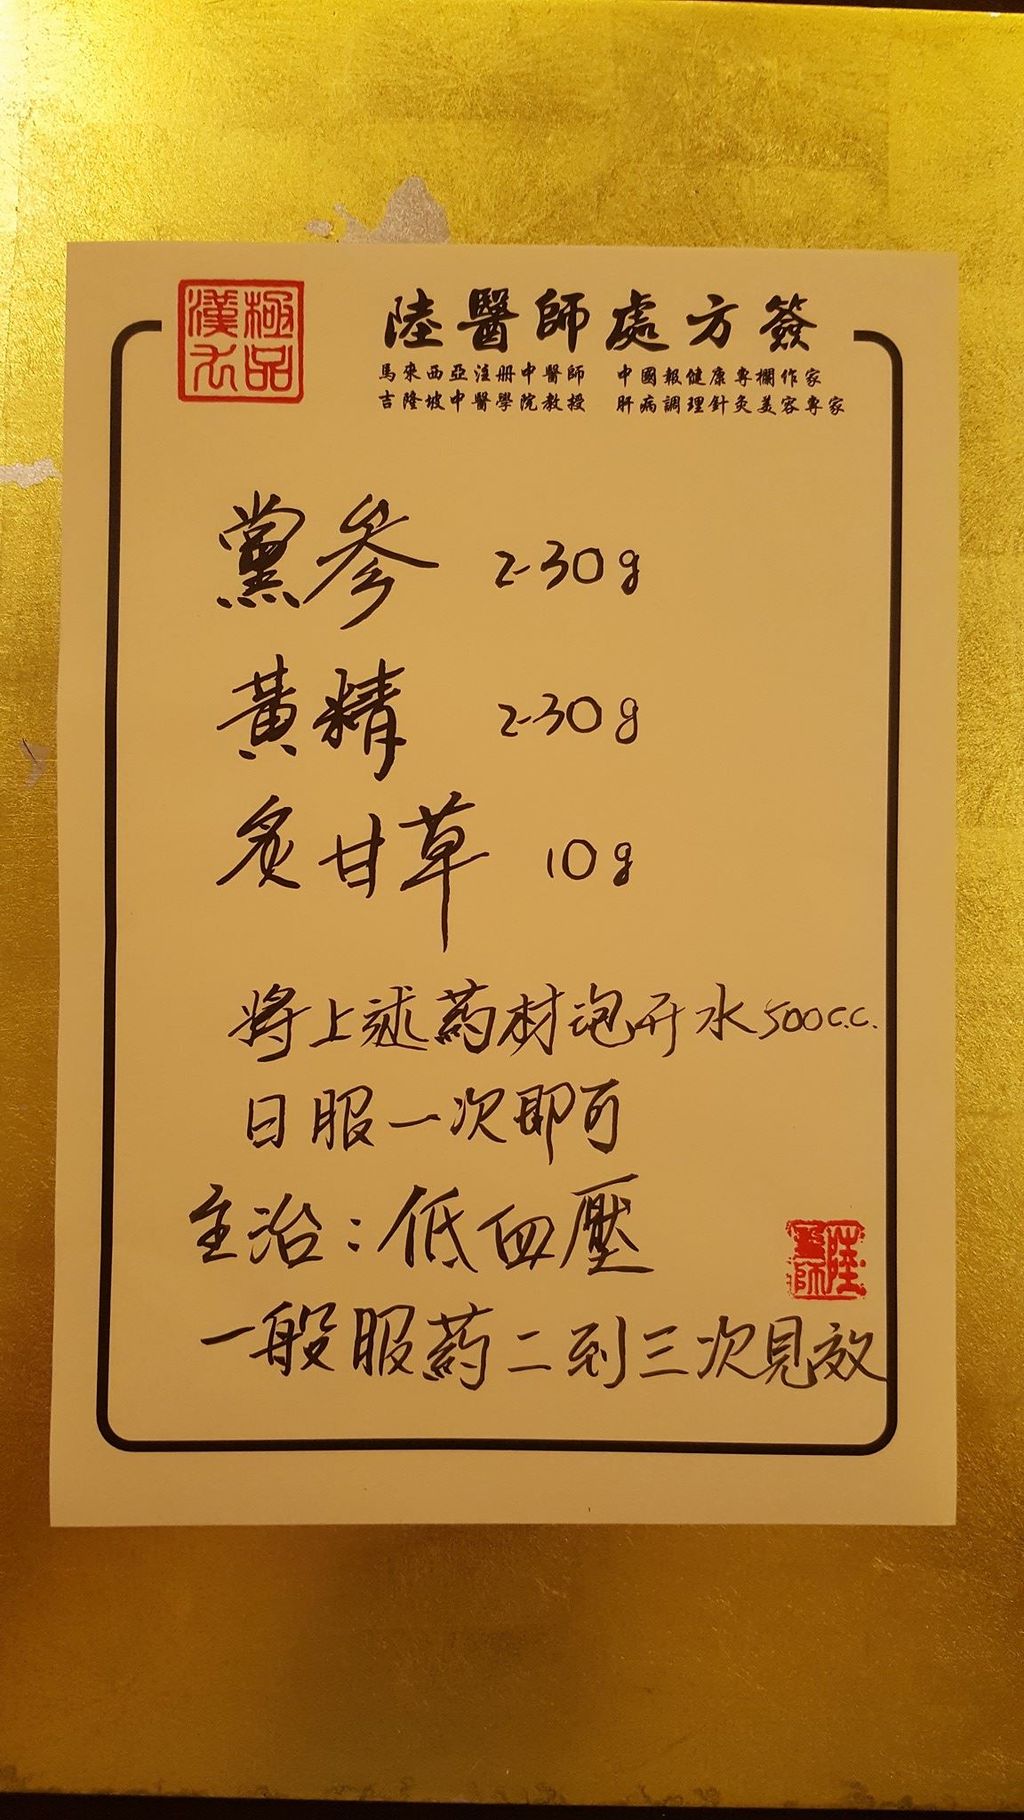 極品
漢方
陸醫師處方簽
馬來西亞注册中醫師 中國報健康專欄作家
吉隆坡中醫學院教授 肝病調理針灸美容專家
黨参 2-30g
黃精 2-30g
炙甘草 10g
將上述药材泡开水500c.c.
日服一次即可
主治：低血壓
陸醫師
一般服药二到三次見效